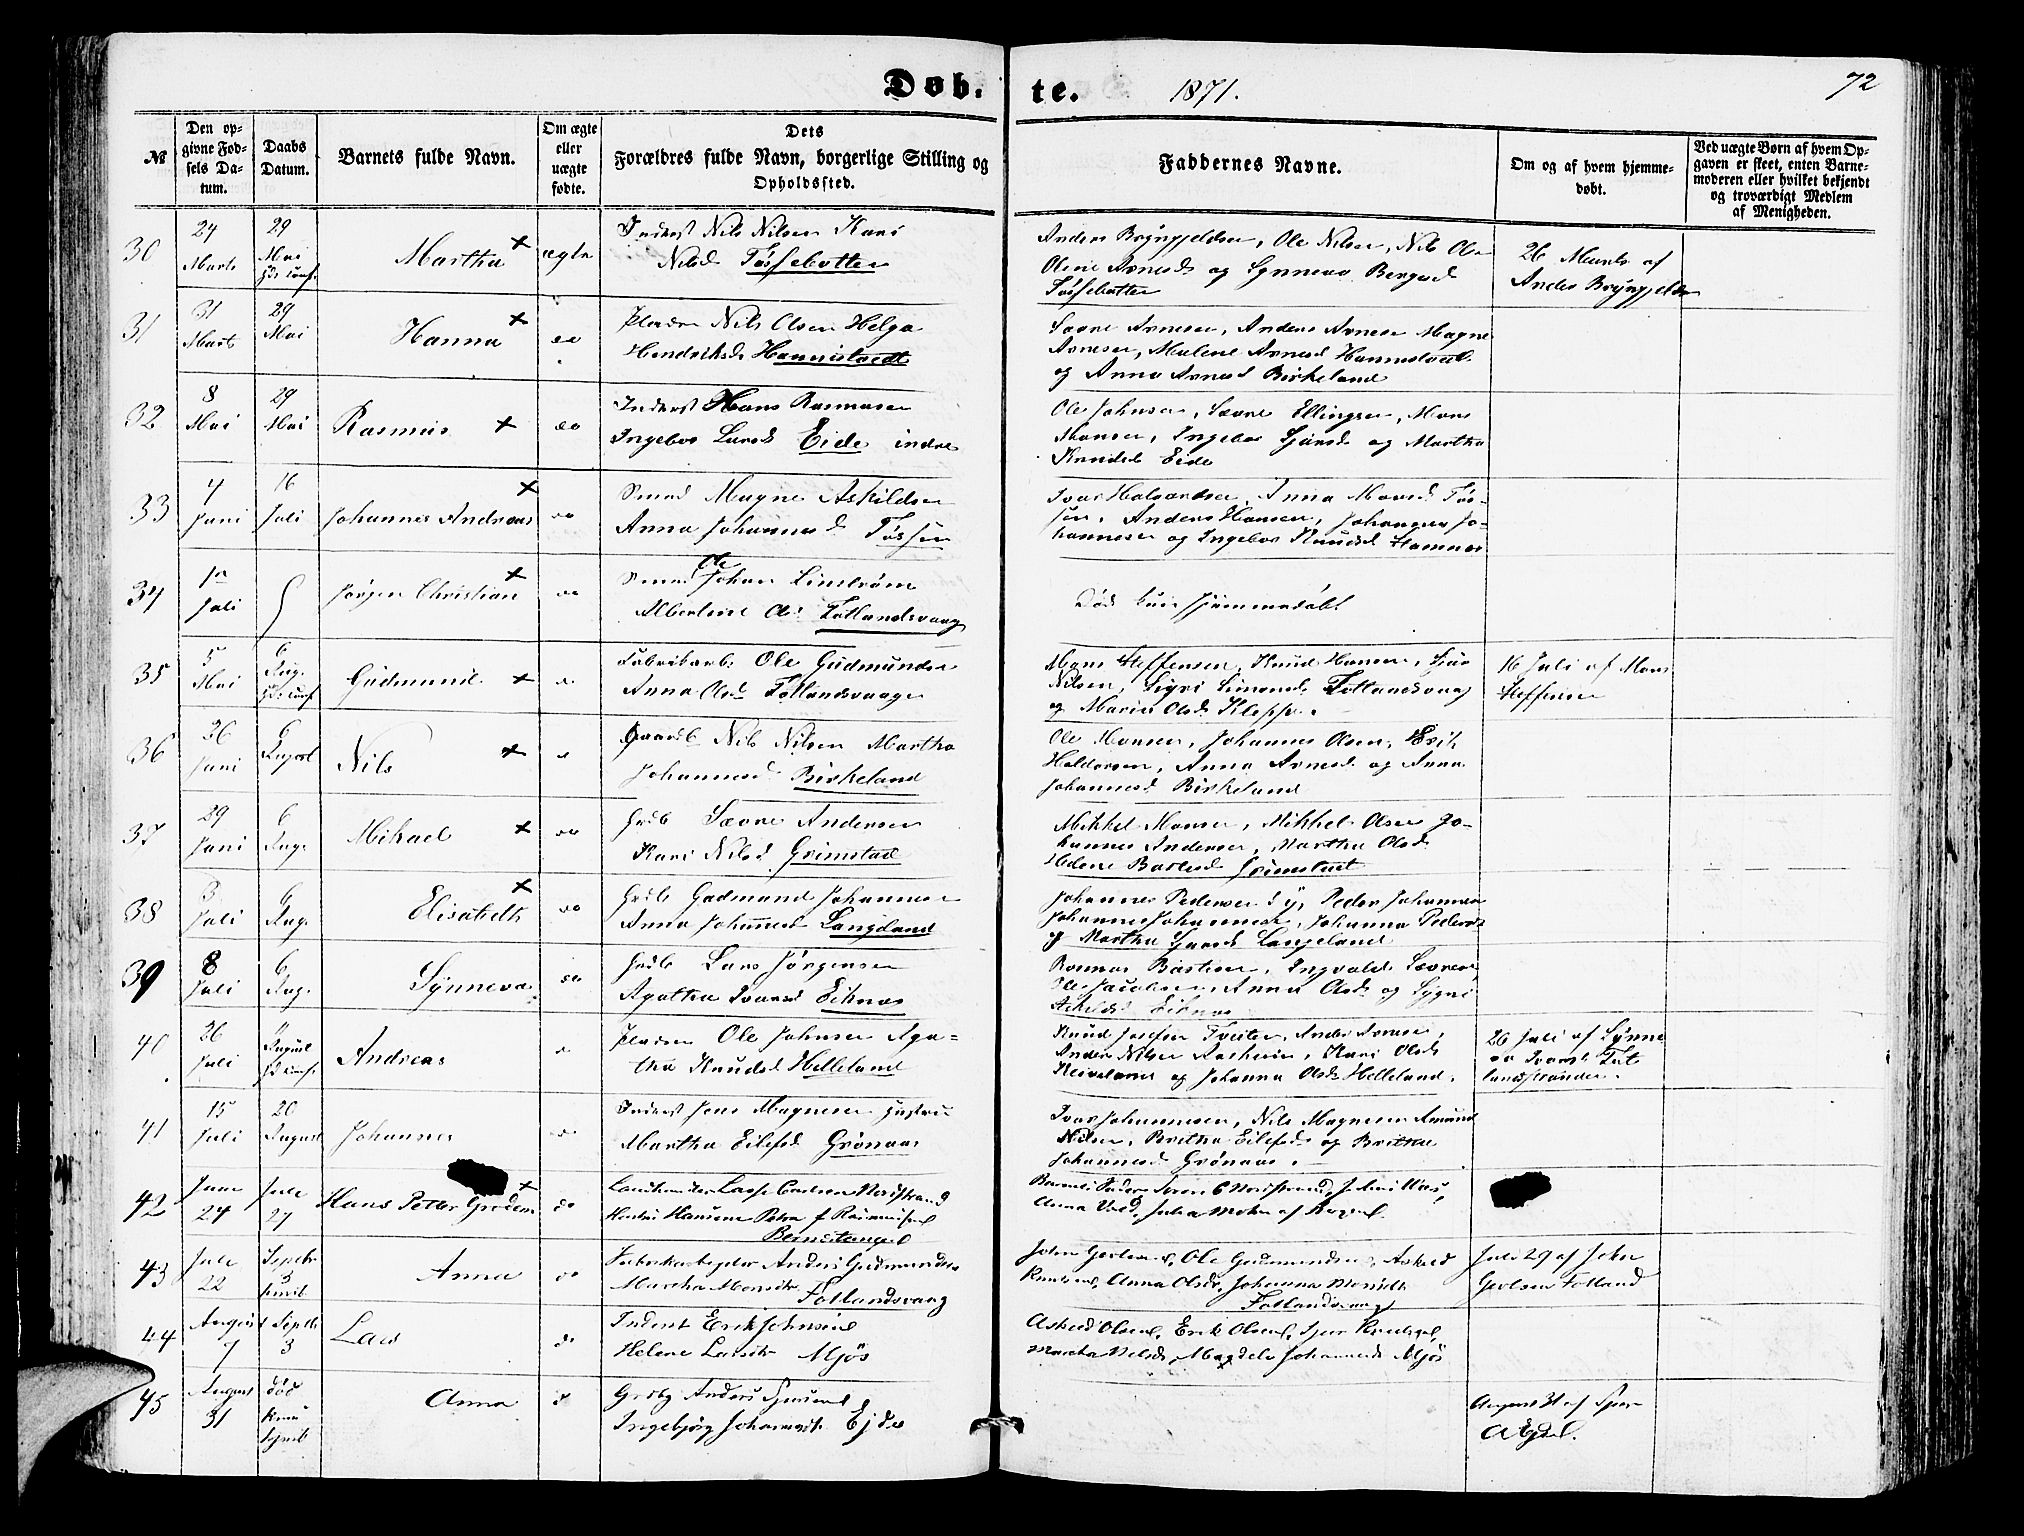 Døb. te. 1871. 72
№
Den opgivne Fødsels Datum.
Daabs Datum.
Barnets fulde Navn.
Om ægte eller uægte fødte.
Dets
Forældres fulde Navn, borgerlige Stilling og
Opholdssted.
Faddernes Navne.
Om og af hvem hjemmedøbt.
Ved uægte Børn af hvem Opgaven er skeet, enten Barnemoderen eller hvilket bekjendt og troværdigt Medlem af Menigheden.
30 24 Marts 29 Mai Martha ægte Inderst Nils Nilsen Kari
Nilsd Tøssebotten
Anders Brÿngjeldsen, Ole Nilsen, Nils Ols
Oline Arnesd og Synneva Bergesd
Tøssebotten
26 Marts af
Anders Brÿngjelds
31 31 Marts 29 Mai Hanna do Pladsm Nils Olsen Helga
Hendriksd Hannistvedt
Sævre Arnesen, Anders Arnesen Magne
Arnesen, Malene Arnesd Hannestvedt
og Anna Arnesd Birkeland
32 8 Mai 29 Mai Rasmus do Inderst Hans Rasmusen
Ingebor Larsd Eide indre
Ole Johnsen, Sævre Ellingsen, Mons
Hansen, Ingebor Sjursd og Martha
Knudsd Eide
33 4 Juni 16 Juli Johannes Andreas do Smed Magne Askildsen
Anna Johannesd Tøssen
Ivar Halvordsen, Anna Monsd Tøs-
sen, Anders Hansen, Johannes Jo-
hannesen og Ingebor Knudsd Hamnes
34 Juli Jørgen Christian do Smed Ole Johan Linstrøm
Albertine Olsd Fotlandsvaag
Død kun hjemmedøbt
35 5 Mai 6 Aug. Gudmund do Fabrikarb. Ole Gudmundsen
Anna Olsd Fotlandsvaage
Mons Steffensen, Knud Hansen, Sjur
Nilsen, Sigri Simonsd. Fotlandsvaag
og Marie Olsd Kleppe.
16 Juli af Mons
Steffensen
36 26 Juni 6 August Nils do Gaardb Nils Nilsen Martha
Johannesd Birkeland
Ole Monsen, Johannes Olsen, Erik
Haldorsen, Anna Arnesd og Anna
Johannesd Birkeland
37 29 Juni 6 Aug. Mikael do Grdb Sævre Andersen
Kari Nilsd Grimstad
Mikkel Monsen, Mikkel Olsen Jo-
hannes Andersen, Martha Olsd
Helene Bartesd Grimstad
38 3 Juli 6 Aug. Elisabeth do Grdb Gudmund Johannesen
Anna Johannesd Langeland
Johannes Pedersen Sy, Peder Johannesen
Johannes Johannesen, Johanna Pedersd
og Martha Sjursd Langeland
39 8 Juli 6 Aug. Sÿnneva do Grdb Lars Jørgensen
Agatha Ivarsd Eiknes
Rasmus Bastian, Ingvald Sævresen
Ole Jacobsen, Anna Olsd og Sygni
Askildsd Eiknes
40 26 Juli August Andreas do Pladsm Ole Johnsen Aga-
tha Knudsd Helleland
Knud Josefsen Tveiten, Anders Arnesen,
Anders Nilsen Aasheim, Kari Olsd
og Johanna Olsd Helleland.
26 Juli af Sÿnne
va Ivarsd Fot
landsstranden.
41 15 Juli 20 August Johannes do Inderst Jens Magnesen Hustru
Martha Eilefsd Grønaas
Ivar Johannesen, Nils Magnesen Amund
Nilsen, Britha Eilefsd og Britha
Johannesd Grønaas.
42 Juni 24 Juli 27 Hans Petter do Landhandler Lasse Carlsen Nordstrand
Hustru Hansine Petra f Rasmussen
Anna
43 Juli 22 Septbr 3 Anna do Fabrikarbeider Anders Gudmundsen
Martha Monsdtr Fotlandsvaag
John Gerlsen, Ole Gudmundsen, Askild
Knutsen, Anna Olsdr, Johanna Monsdtr
Fotlandsvaag
Juli 29 af John
Gerlsen Fotland
44 August 7 Septbr 3 Lars do Inderst Erik Johnsen
Helene Larsdtr Mjøs
Askild Olsen, Erik Olsen, Sjur Knudsen,
Martha Nilsdr, Magdela Johannesdr Mjøs
45 August 31 død Anna do Grdbg Anders Sjursen
Ingebjørg Johannesdtr Ejde
August 31 af Sjur